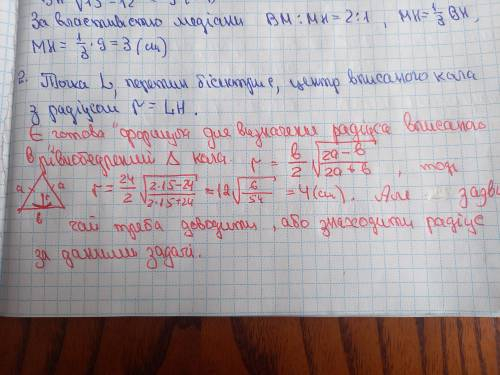 √15 - 12
За властивістю медіани BM : MH = 2:1 , MH = 1/3 BH,
MH = 1/3 · 9 = 3 (см)
2. Точка L, перетин бісектрис, центр вписаного кола
з радіусом r = LH.
Є готова формула для визначення радіуса вписаного
в рівнобедрений Δ кола. r = b/2 √(2a - b)/(2a + b) , тоді
a a r b
r = 24/2 √(2·15-24)/(2·15+24) = 12 √6/54 = 4 (см). Але зазви
чай треба доводити, або знаходити радіус
за даними задачі.